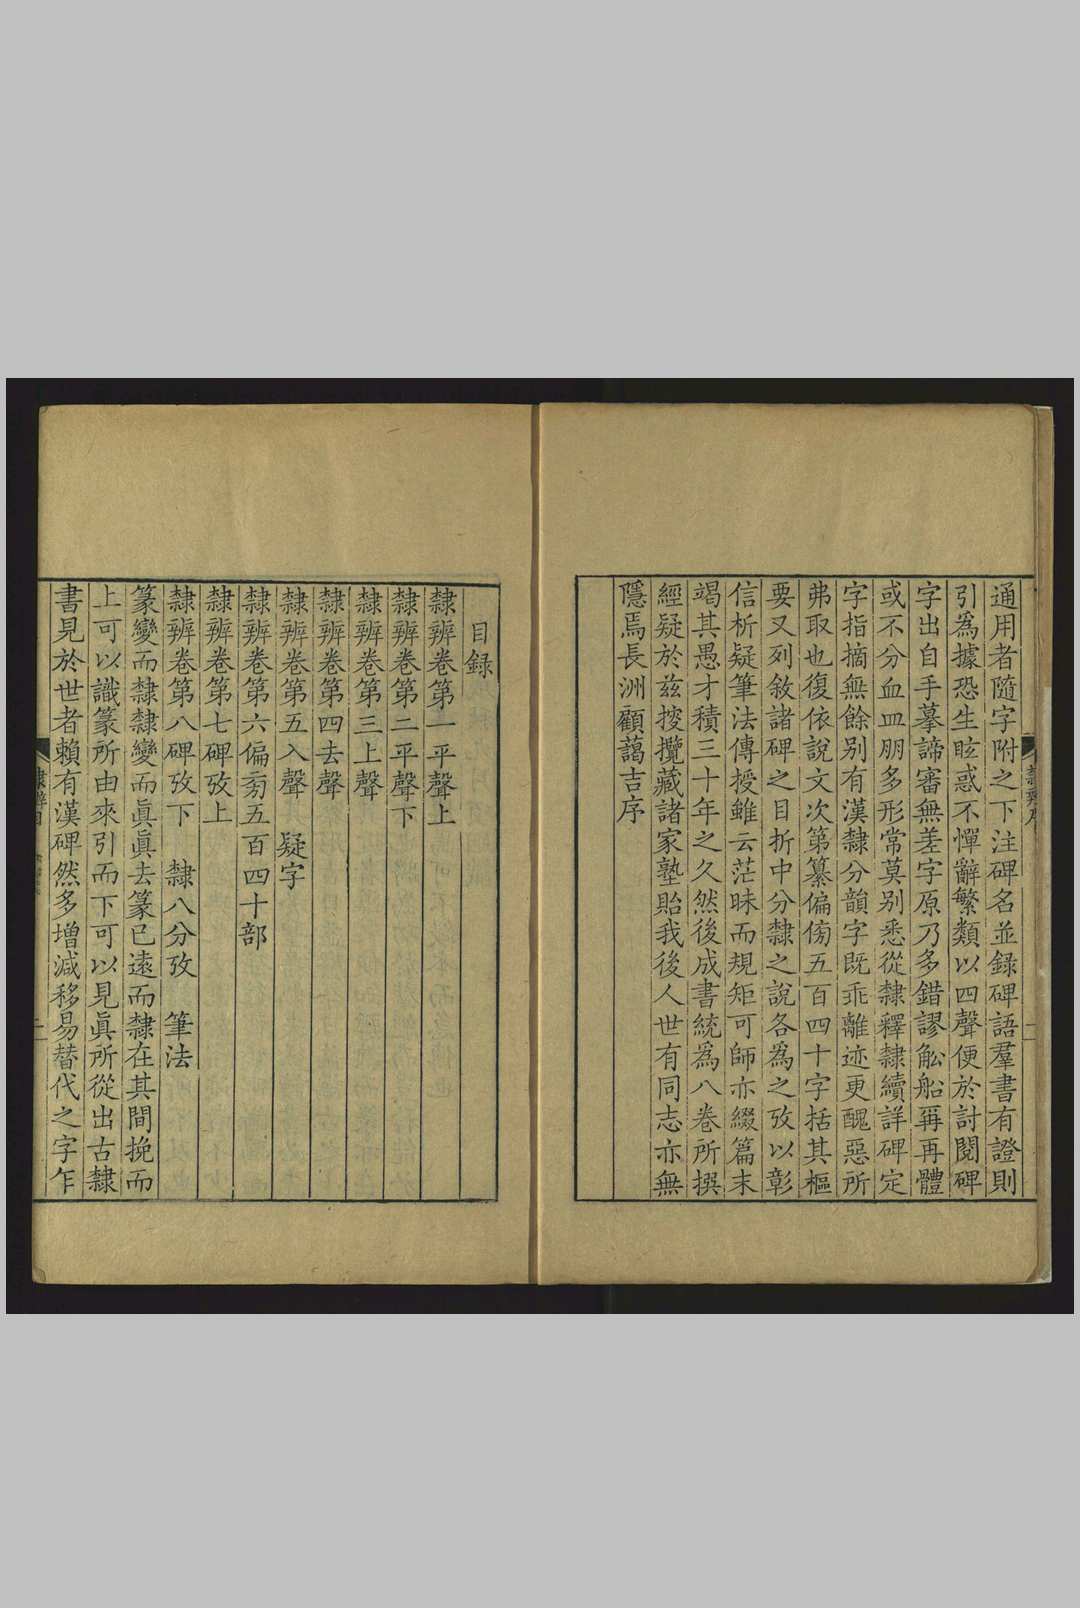 通用者隨字附之下注碑名並錄碑語羣書有證則
引爲據恐生眩惑不憚辭繁類以四聲便於討閱碑
字出自手摹諦審無差字原乃多錯謬舩船爯再體
或不分血皿朋多形常莫別悉從隸釋隸續詳碑定
字指摘無餘別有漢隸分韻字既乖離迹更醜惡所
弗取也復依說文次第纂偏傍五百四十字括其樞
要又列敘諸碑之目折中分隸之說各爲之攷以彰
信析疑筆法傳授雖云茫昧而規矩可師亦綴篇末
竭其愚才積三十年之久然後成書統爲八卷所撰
經疑於茲挍攬藏諸家塾貽我後人世有同志亦無
隱焉長洲顧藹吉序
隸辨序
二
目錄
隸辨卷第一平聲上
隸辨卷第二平聲下
隸辨卷第三上聲
隸辨卷第四去聲
隸辨卷第五入聲 疑字
隸辨卷第六偏㫄五百四十部
隸辨卷第七碑攷上
隸辨卷第八碑攷下 隸八分攷 筆法
篆變而隸隸變而眞眞去篆已遠而隸在其間挽而
上可以識篆所由來引而下可以見眞所從出古隸
書見於世者賴有漢碑然多增減移易替代之字乍
隸辨目